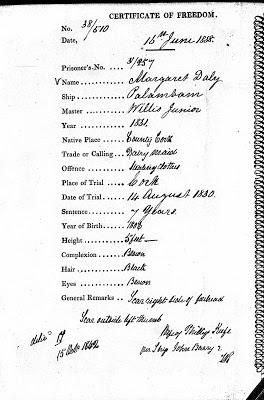 CERTIFICATE OF FREEDOM.
No. 38/510
Date, 16th June 1838.
Prisoner's No. 31/957
Name Margaret Daly
Ship Palambam
Master Willis Junior
Year 1831
Native Place County Cork
Trade or Calling Dairymaid
Offence Stealing clothes
Place of Trial Cork
Date of Trial 14 August 1830.
Sentence 7 Years.
Year of Birth 1808
Height 5 feet
Complexion Brown
Hair Black
Eyes Brown
General Remarks Scar right side of forehead
Scar outside left thumb
Wife of Phillip
per Ship John Barry 2
15 1842